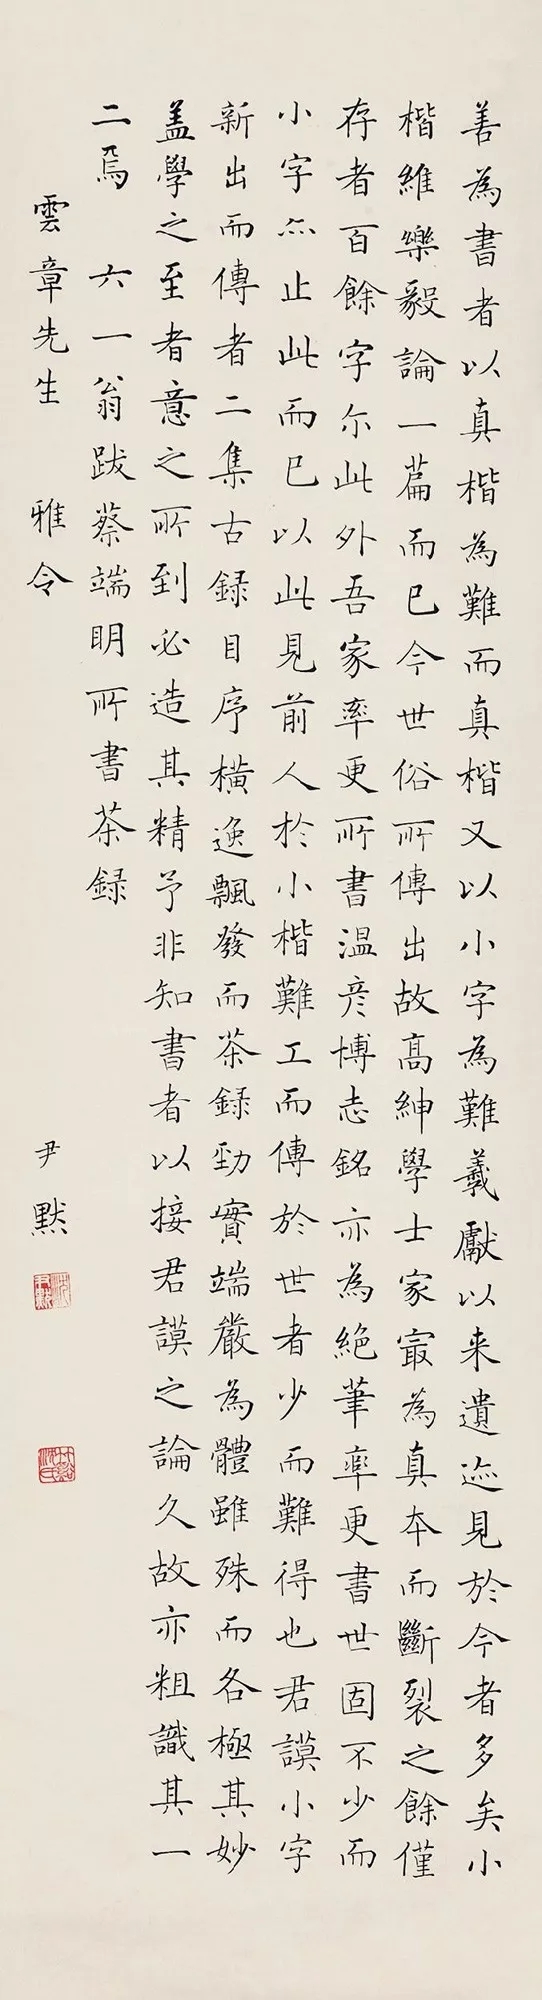 善為書者以真楷為難而真楷又以小字為難羲獻以来遺迹見於今者多矣小
楷維樂毅論一萹而已今世俗所傳出故高紳學士家㝡為真本而斷裂之餘僅
存者百餘字尔此外吾家率更所書温彦博志銘亦為絶筆率更書世固不少而
小字亦止此而已以此見前人於小楷難工而傳於世者少而難得也君謨小字
新出而傳者二集古録目序橫逸飄發而茶録勁實端嚴為體雖殊而各極其妙
盖學之至者意之所到必造其精予非知書者以接君謨之論久故亦粗識其一
二焉 六一翁跋蔡端明所書茶録
雲章先生 雅令 尹默
沈尹默
竹谿沈氏